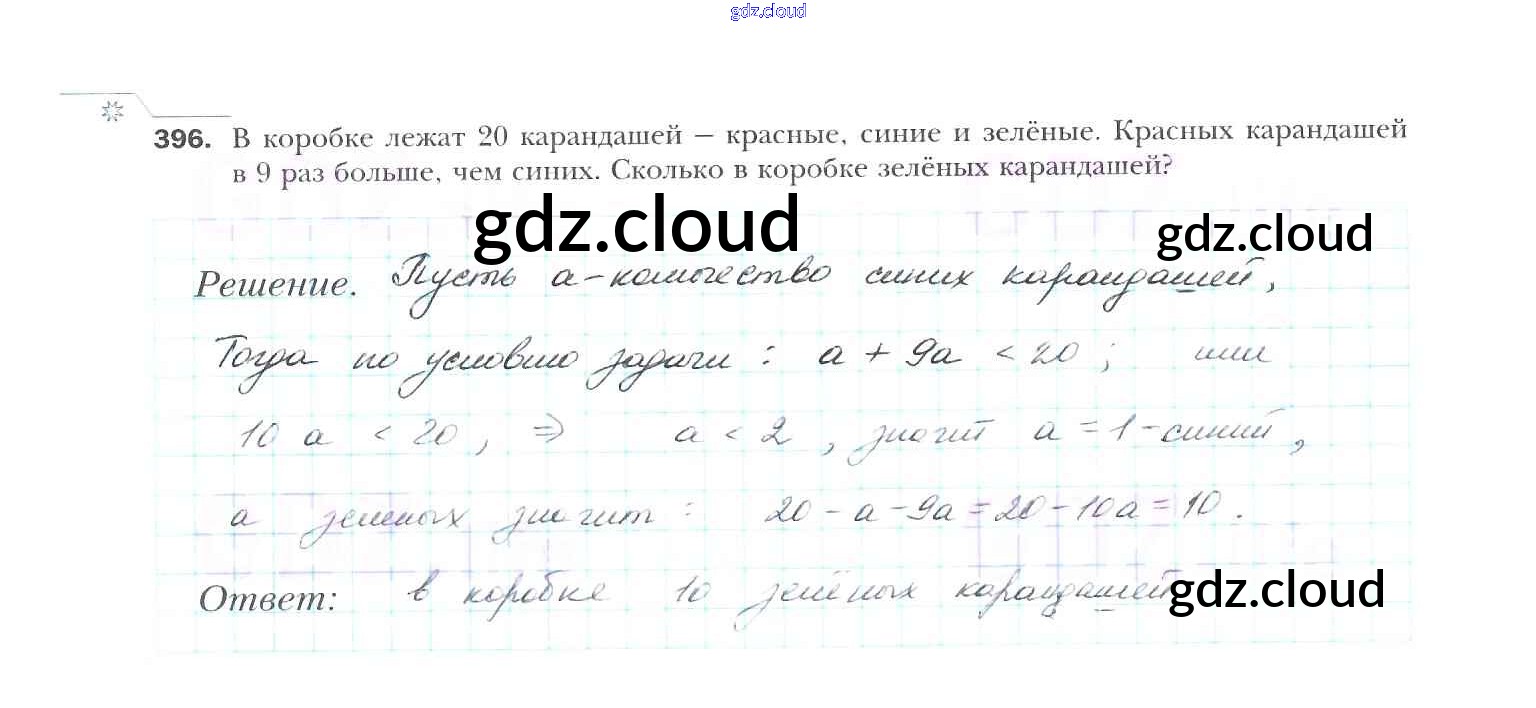 gdz.cloud
396. В коробке лежат 20 карандашей – красные, синие и зелёные. Красных карандашей
в 9 раз больше, чем синих. Сколько в коробке зелёных карандашей?
gdz.cloud gdz.cloud
Решение. Пусть а – количество синих карандашей,
Тогда по условию задачи : а + 9а < 20 ; или
10 а < 20 , ⇒ а < 2 , значит а = 1 – синий ,
а зеленых значит : 20 – а – 9а = 20 – 10а = 10 .
Ответ: в коробке 10 зелёных карандашей
gdz.cloud